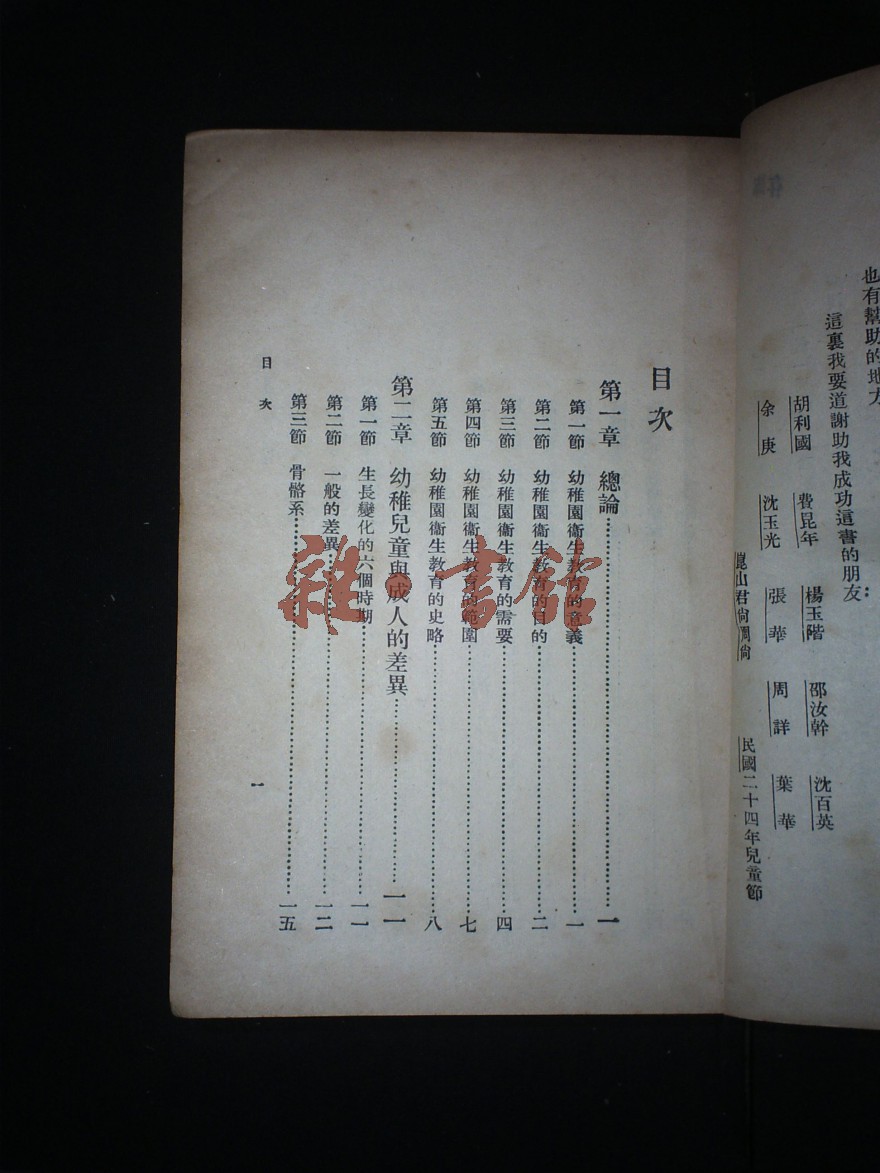 也有幫助的地方
這裏我要道謝助我成功這書的朋友：
胡利國 費昆年 楊玉階 邵汝幹 沈百英
余庚 沈玉光 張華 周詳 葉華
崑山君尙周尙
民國二十四年兒童節
目次
第一章 總論……一
第一節 幼稚園衞生教育的意義……一
第二節 幼稚園衞生教育的目的……二
第三節 幼稚園衞生教育的需要……四
第四節 幼稚園衞生教育的範圍……七
第五節 幼稚園衞生教育的史略……八
第二章 幼稚兒童與成人的差異……一一
第一節 生長變化的六個時期……一一
第二節 一般的差異……一二
第三節 骨骼系……一五
目次
一
雜·書館